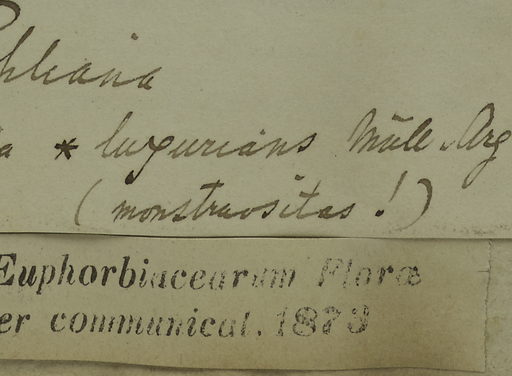 * luxurians Müll. Arg
(monstruositas!)
Euphorbiacearum Floræ
er communicat. 1873